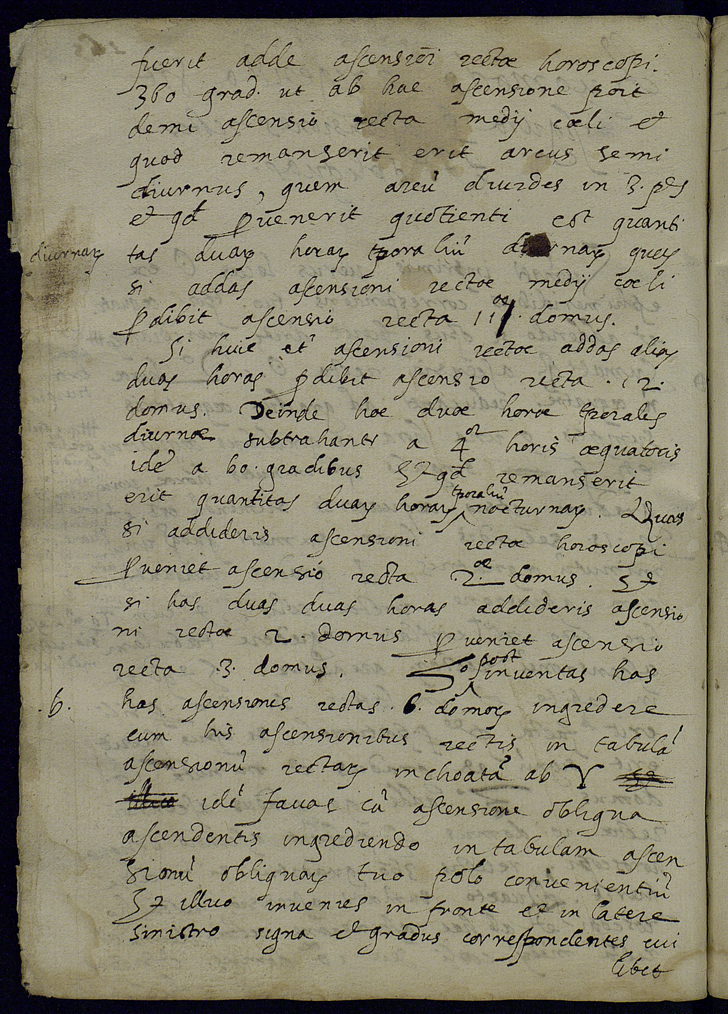 fuerit adde ascensiōi rectæ horoscopi
360 grad. ut ab hac ascensione poīt
demi ascensiō recta medij cœli et
quod remanserit erit arcus semi
diurnus, quem arcū divides in 3. ptes
et qd pvenerit quotienti est quanti
diurnaꝝ
tas duaꝝ horaꝝ tporaliū quas
si addas ascensioni rectæ medij cœli
pdibit ascensio recta 11æ. domus.
Si huic et ascensioni rectæ addas alias
duas horas pdibit ascensio recta .12.
domus. Deinde hæ duæ horæ tporales
diurnæ subtrahantr a 4or horis æquatoris
idē a 60. gradibus Et qd remanserit
erit quantitas duaꝝ horaꝝ tporaliū nocturnaꝝ. Quas
si addideris ascensioni rectæ horoscopi
pveniet ascensiō recta 2æ domus. Et
si has duas duas horas addideris ascensio
ni rectæ 2. domus pveniet ascensio
recta 3. domus. 5o post inventas has
.6. has ascensiones rectas .6. domoꝝ ingredere
cum his ascensionibus rectis in tabulā
ascensionū rectaꝝ inchoatā ab ♈
idē facias cū ascensione obliqua
ascendentis ingrediendo in tabulam ascen
sionū obliquaꝝ tuo polo convenientiū
Et illico invenies in fronte et in latere
sinistro signa et gradus correspondentes cui
libet